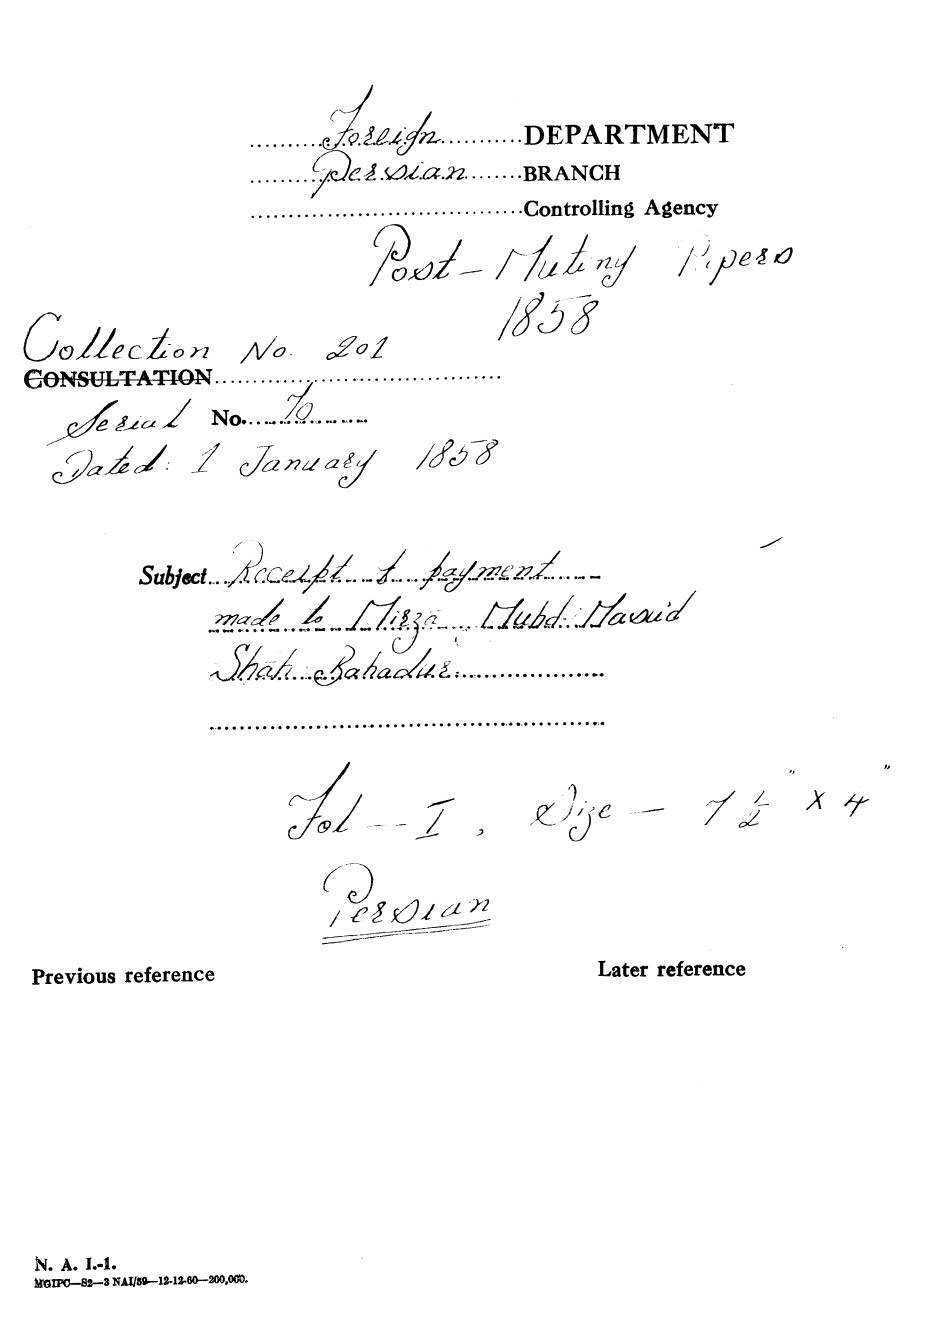 Foreign DEPARTMENT
Persian BRANCH
Controlling Agency
Post-Mutiny Papers
1858
Collection No. 201
CONSULTATION
Serial No. 70
Dated: 1 January 1858
Subject Receipt of payment
made to Mirza Muhd. Masud
Shah Bahadur.
Fol - I, Size - 7 1/2" x 4"
Persian
Previous reference
Later reference
N. A. I.-1.
MGIPC—S2—3 NAI/59—12-12-60—200,000.